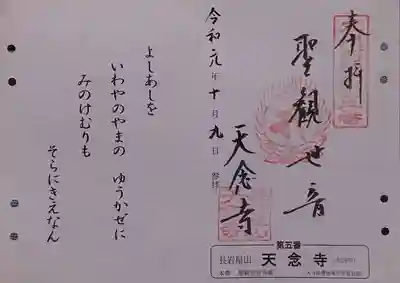 奉拝
聖觀世音
天念寺
令和元年十月九日
よしあしを
いわやのやまの ゆうかぜに
みのけむりも
そらにきえなん
第五番
長岩屋山 天念寺